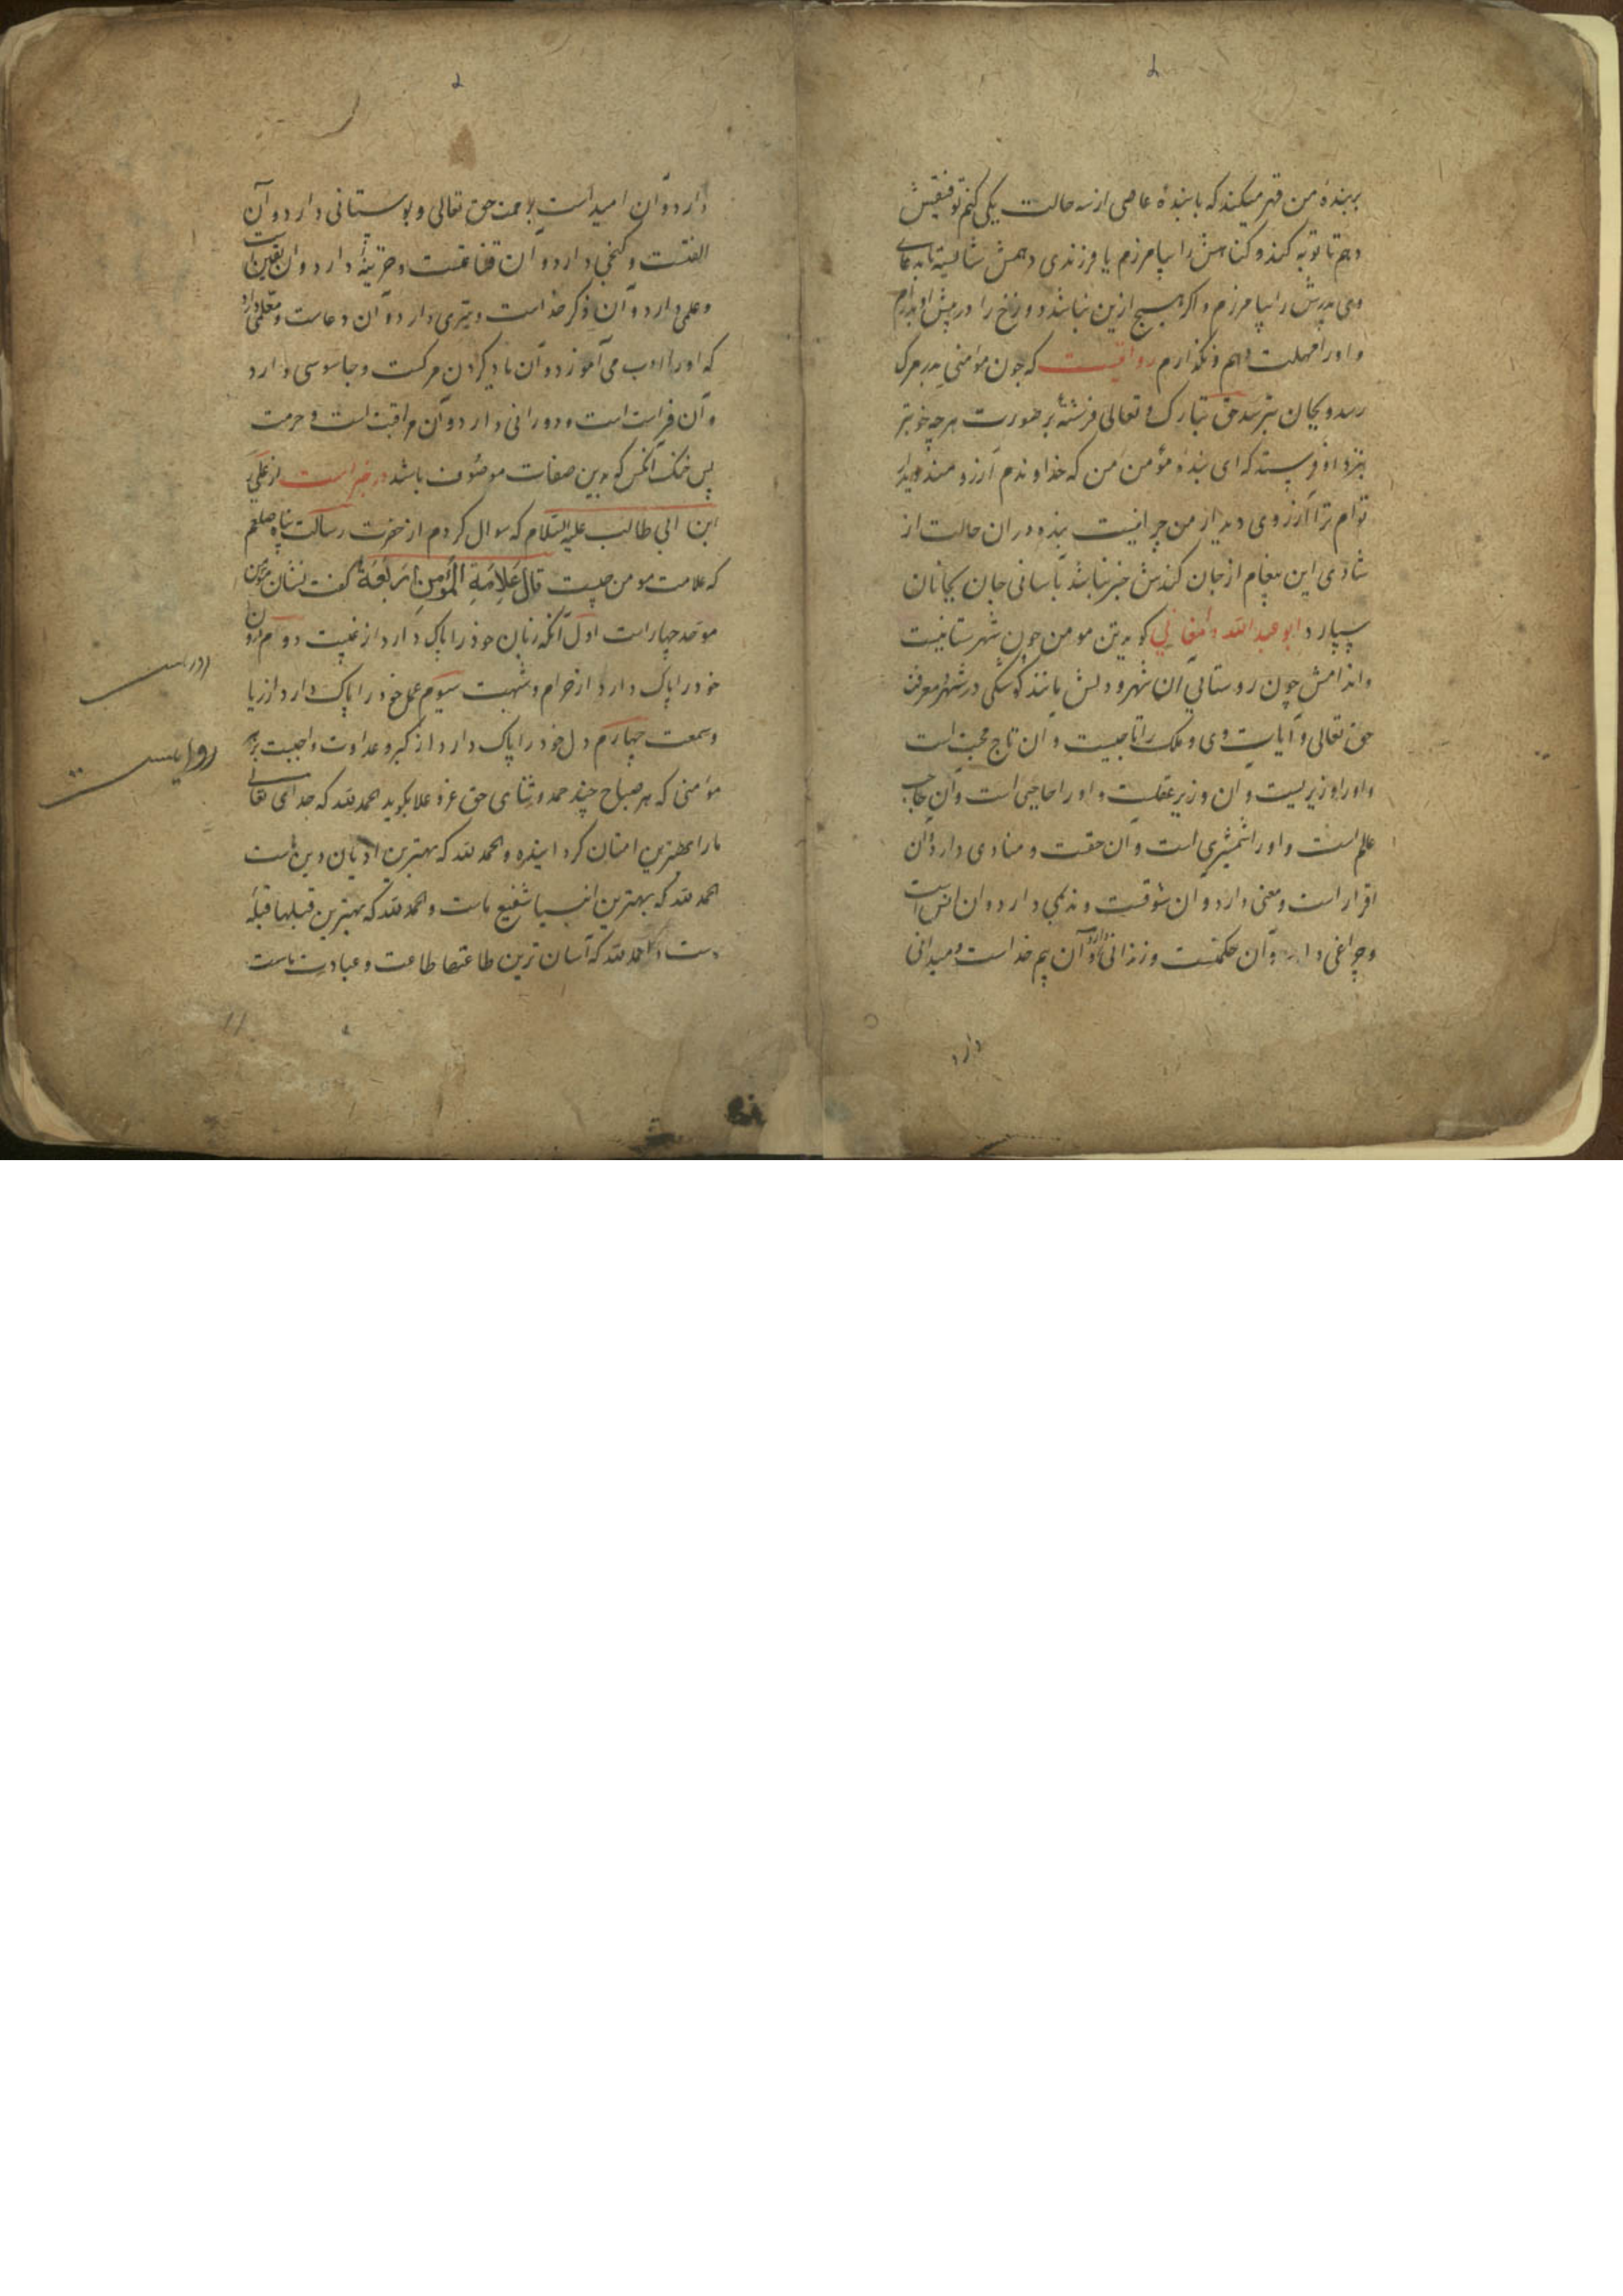 بر بندهٔ من قهر میکند که با بندهٔ عاصی از سه حالت یکی کنم توفیقش
دهم تا توبه کند و کناهش را بیامرزم یا فرزندی دهمش شایسته تا بدعای
وی پدرش را بیامرزم و اکر هیچ ازین نباشد دوزخ را در پیش او بدارم
و او را مهلت دهم و نکذارم روایتست که چون مؤمنی بدر مرک
رسد و بجان بترسد حق تبارک و تعالی فرشتهٔ بر صورت هرچه خوبتر
بنزد او فرستد که ای بندهٔ مؤمن من که خداوندم آرزومند دیدار
توام ترا آرزوی دیدار من چرا نیست بنده در ان حالت از
شادی این پیغام از جان کندنش خبر نباشد بآسانی جان بجانان
سپارد ابو عبد الله دامغانی کوید تن مومن چون شهرستانیست
و اندامش چون روستایی آن شهر و دلش مانند کوشکی در شهر معرفت
حق تعالی و آیات وی و ملک را تاجیست و آن تاج محبت است
و او را وزیریست و ان وزیر عقلست و او را حاجبی است و آن حاجب
علم است و او را شمشیری است و آن حقست و منادی دارد و آن
اقرار است و مغنی دارد و ان شوقست و ندیمی دارد و ان انس است
و چراغی دارد و آن حکمتست و زندانی دارد و آن بیم خداست و میدانی
دارد
دارد و آن امید است برحمت حق تعالی و بوستانی دارد و آن
الفتست و کنجی دارد و آن قناعتست و خزینهٔ دارد و ان یقین است
و علمی دارد و آن ذکر خداست و تیری دارد و آن دعاست و معلمی دارد
که او را ادب می آموزد و آن یاد کردن مرکست و جاسوسی دارد
و آن فراست است و دورانی دارد و آن مراقبت است و حرمت
پس خنک آنکس که بدین صفات موصوف باشد در خبر است از علی
ابن ابی طالب علیه السلام که سوال کردم از حضرت رسالت پناه صلعم
که علامت مومن چیست قال عَلامَةِ المؤمِنِ اَربَعَةٌ کفت نشان مؤمن
موحد چهار است اول آنکه زبان خود را پاک دارد از غیبت دوم درون
خود را پاک دارد از حرام و شبهت سیوم عمل خود را پاک دارد از ریا
و سمعت چهارم دل خود را پاک دارد از کبر و عداوت واجبست بر هر
مؤمنی که هر صباح چند حمد و ثنای حق عز و علا بکوید الحمد لله که خدای تعالی
ما را بهترین امتان کردانیده و الحمد لله که بهترین ادیان دین ماست
الحمد لله که بهترین انبیا شفیع ماست و الحمد لله که بهترین قبلها قبلهٔ
ماست و الحمد لله که آسان ترین طاعتها طاعت و عبادت ماست
روایتست